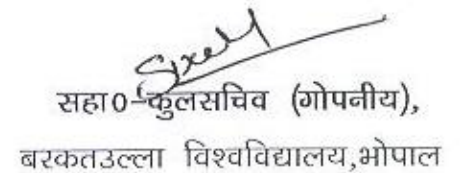 सहा0-कुलसचिव (गोपनीय),
बरकतउल्ला विश्वविद्यालय,भोपाल